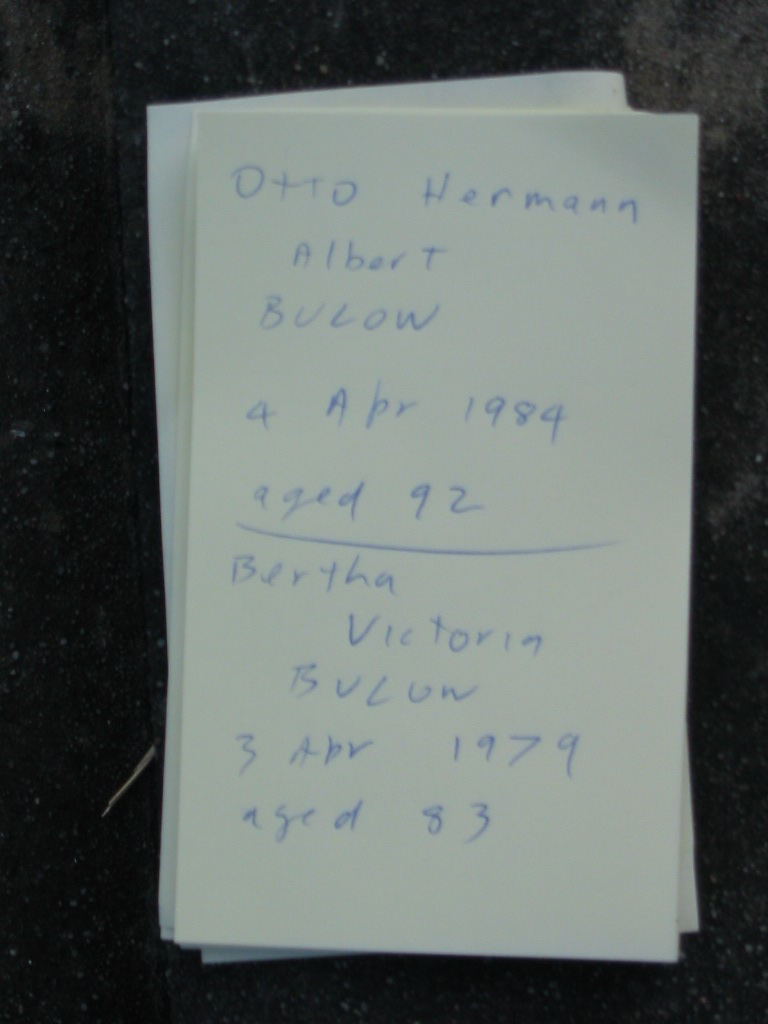 Otto Hermann
Albert
BULOW
4 Apr 1984
aged 92
Bertha
Victoria
BULOW
3 Apr 1979
aged 83